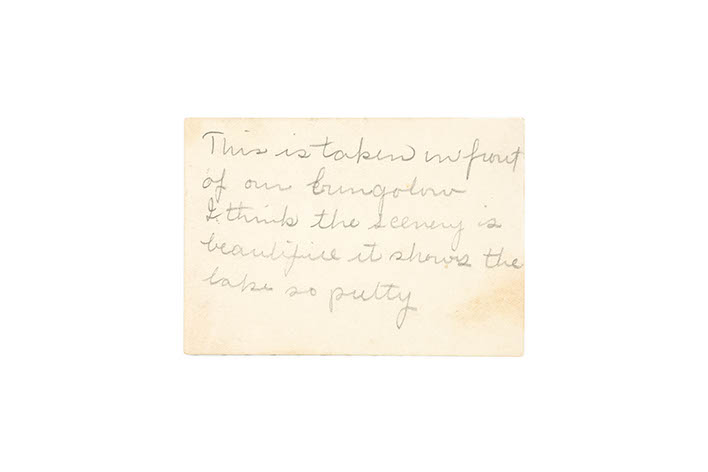 This is taken in front
of our bungolow
I think the scenery is
beautifice it shows the
lake so putty